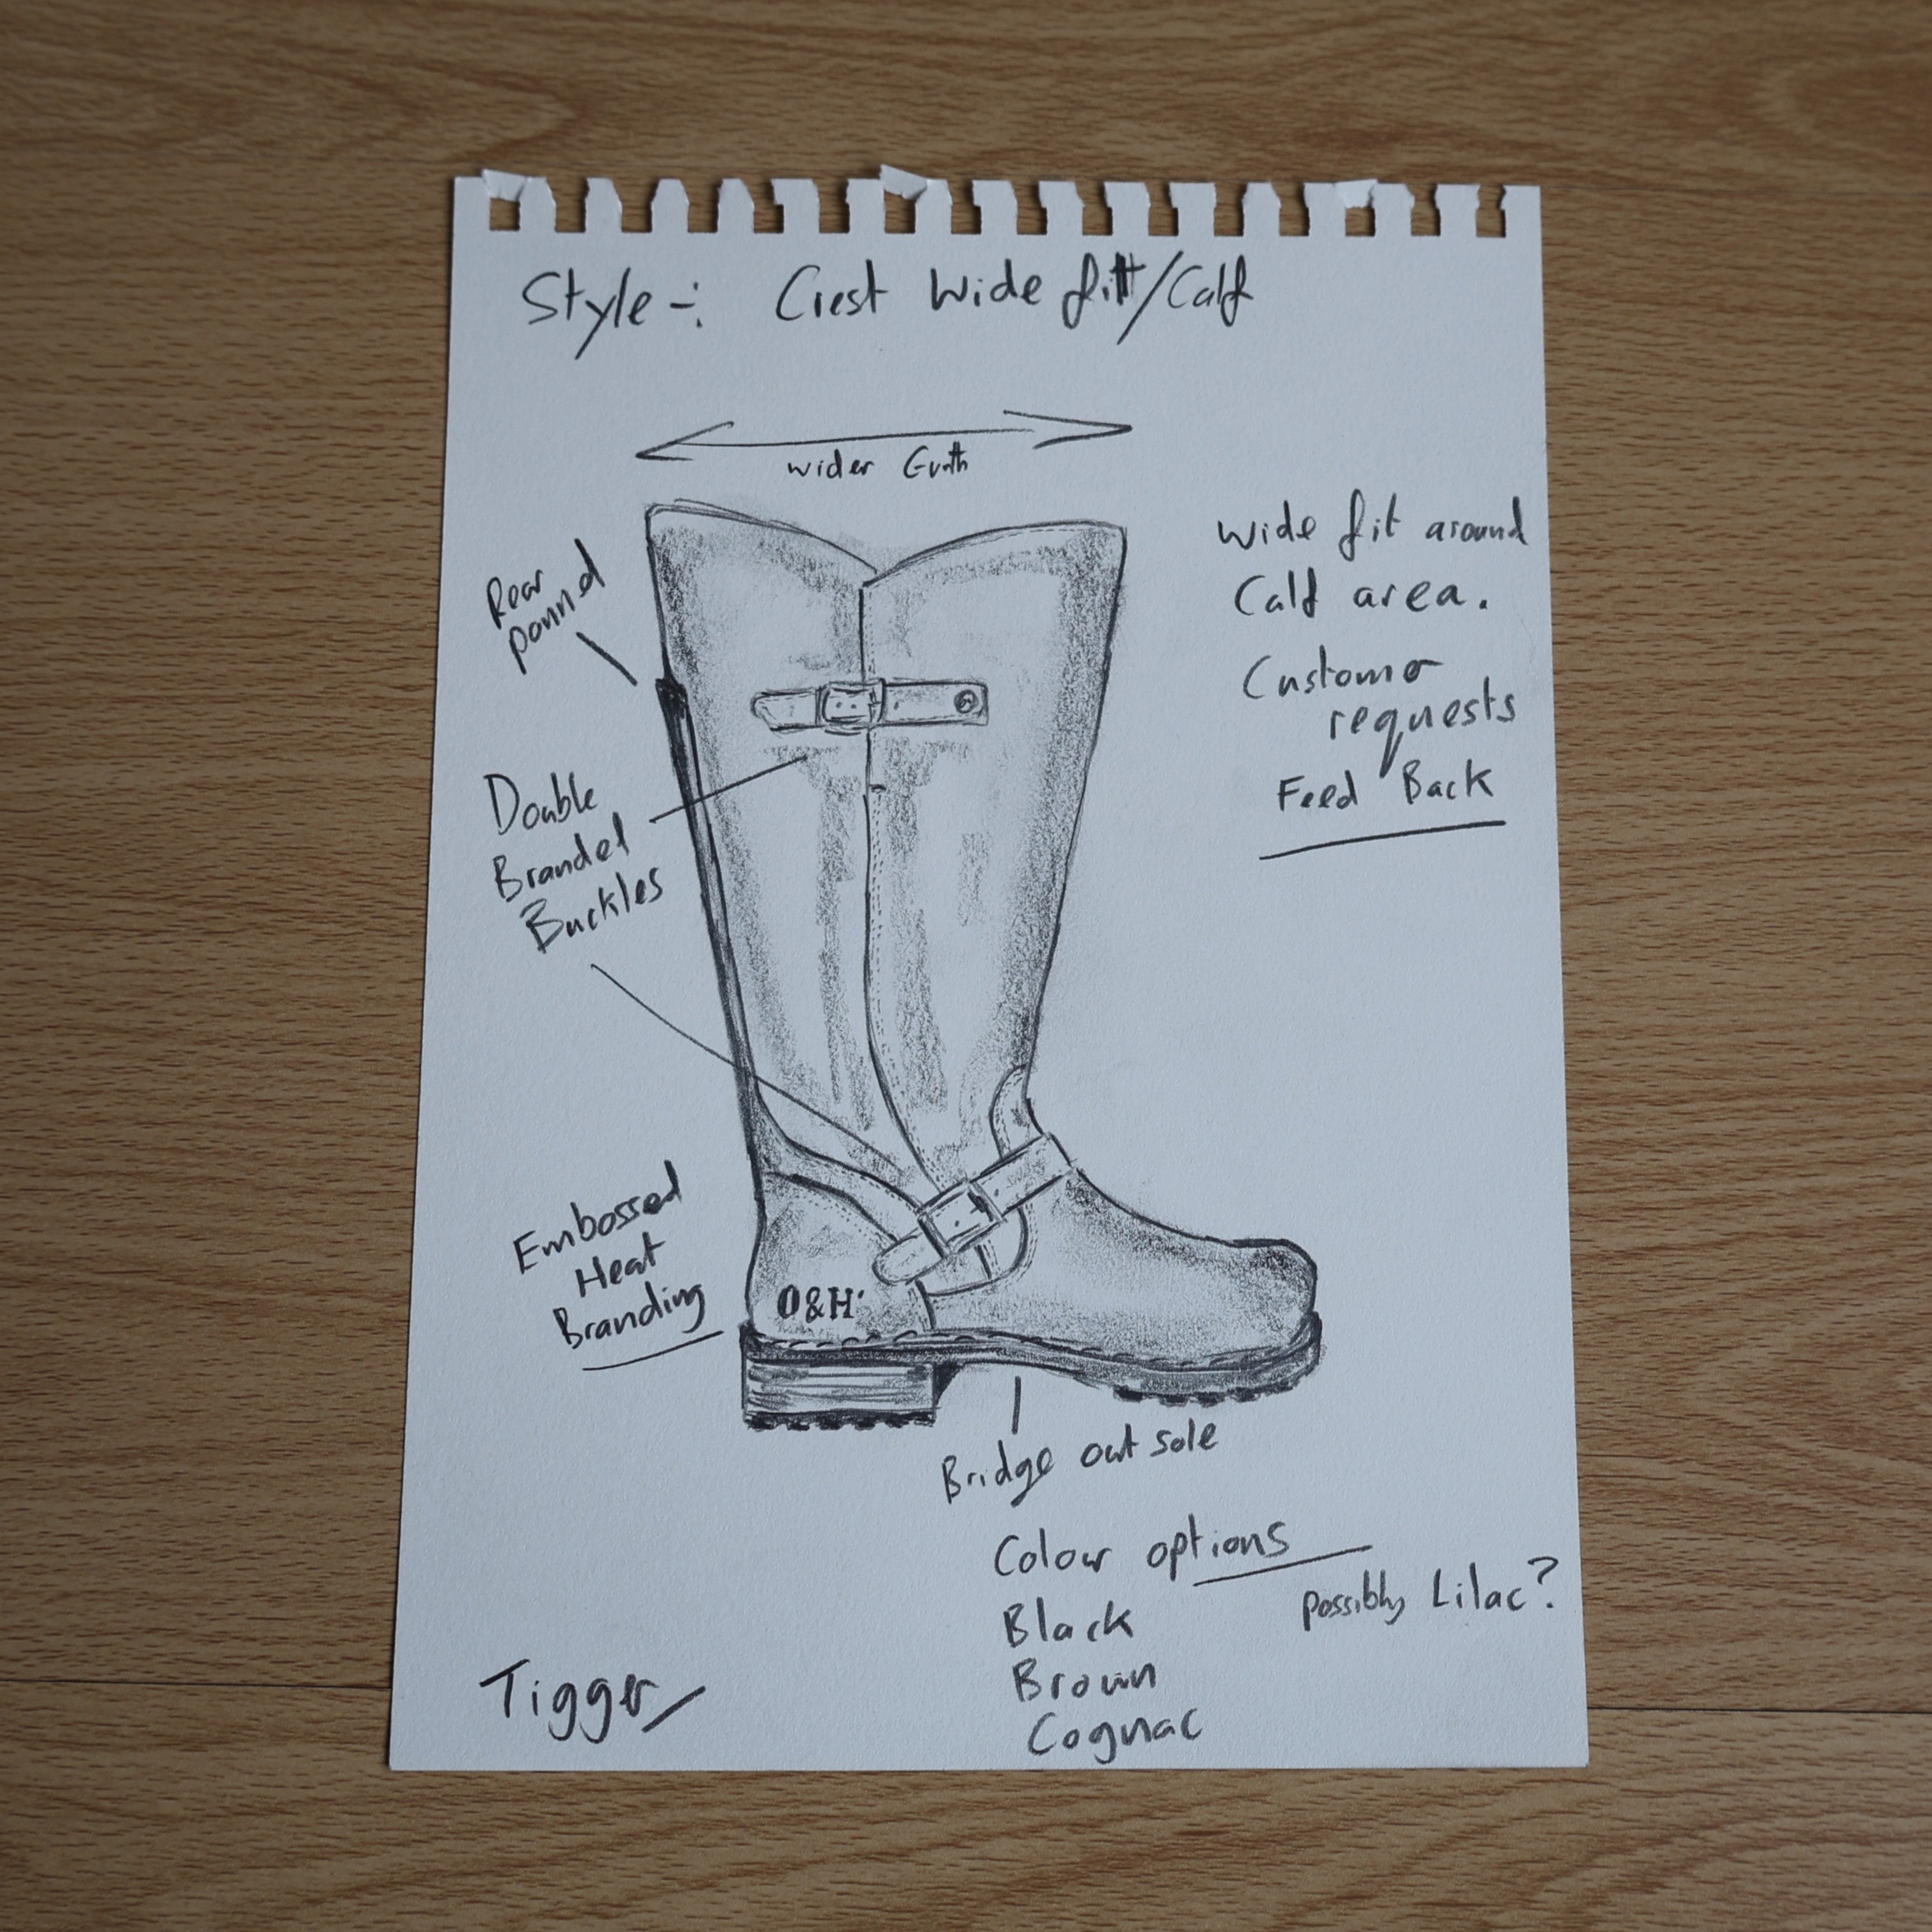 Style -: Crest Wide fitt/Calf
wider Girth
Wide fit around
Calf area.
Customer
requests
Feed Back
Rear
panned
Double
Branded
Buckles
Embossed
Heat
Branding
O&H
Bridge out sole
Colour options
possibly Lilac?
Black
Brown
Cognac
Tigger